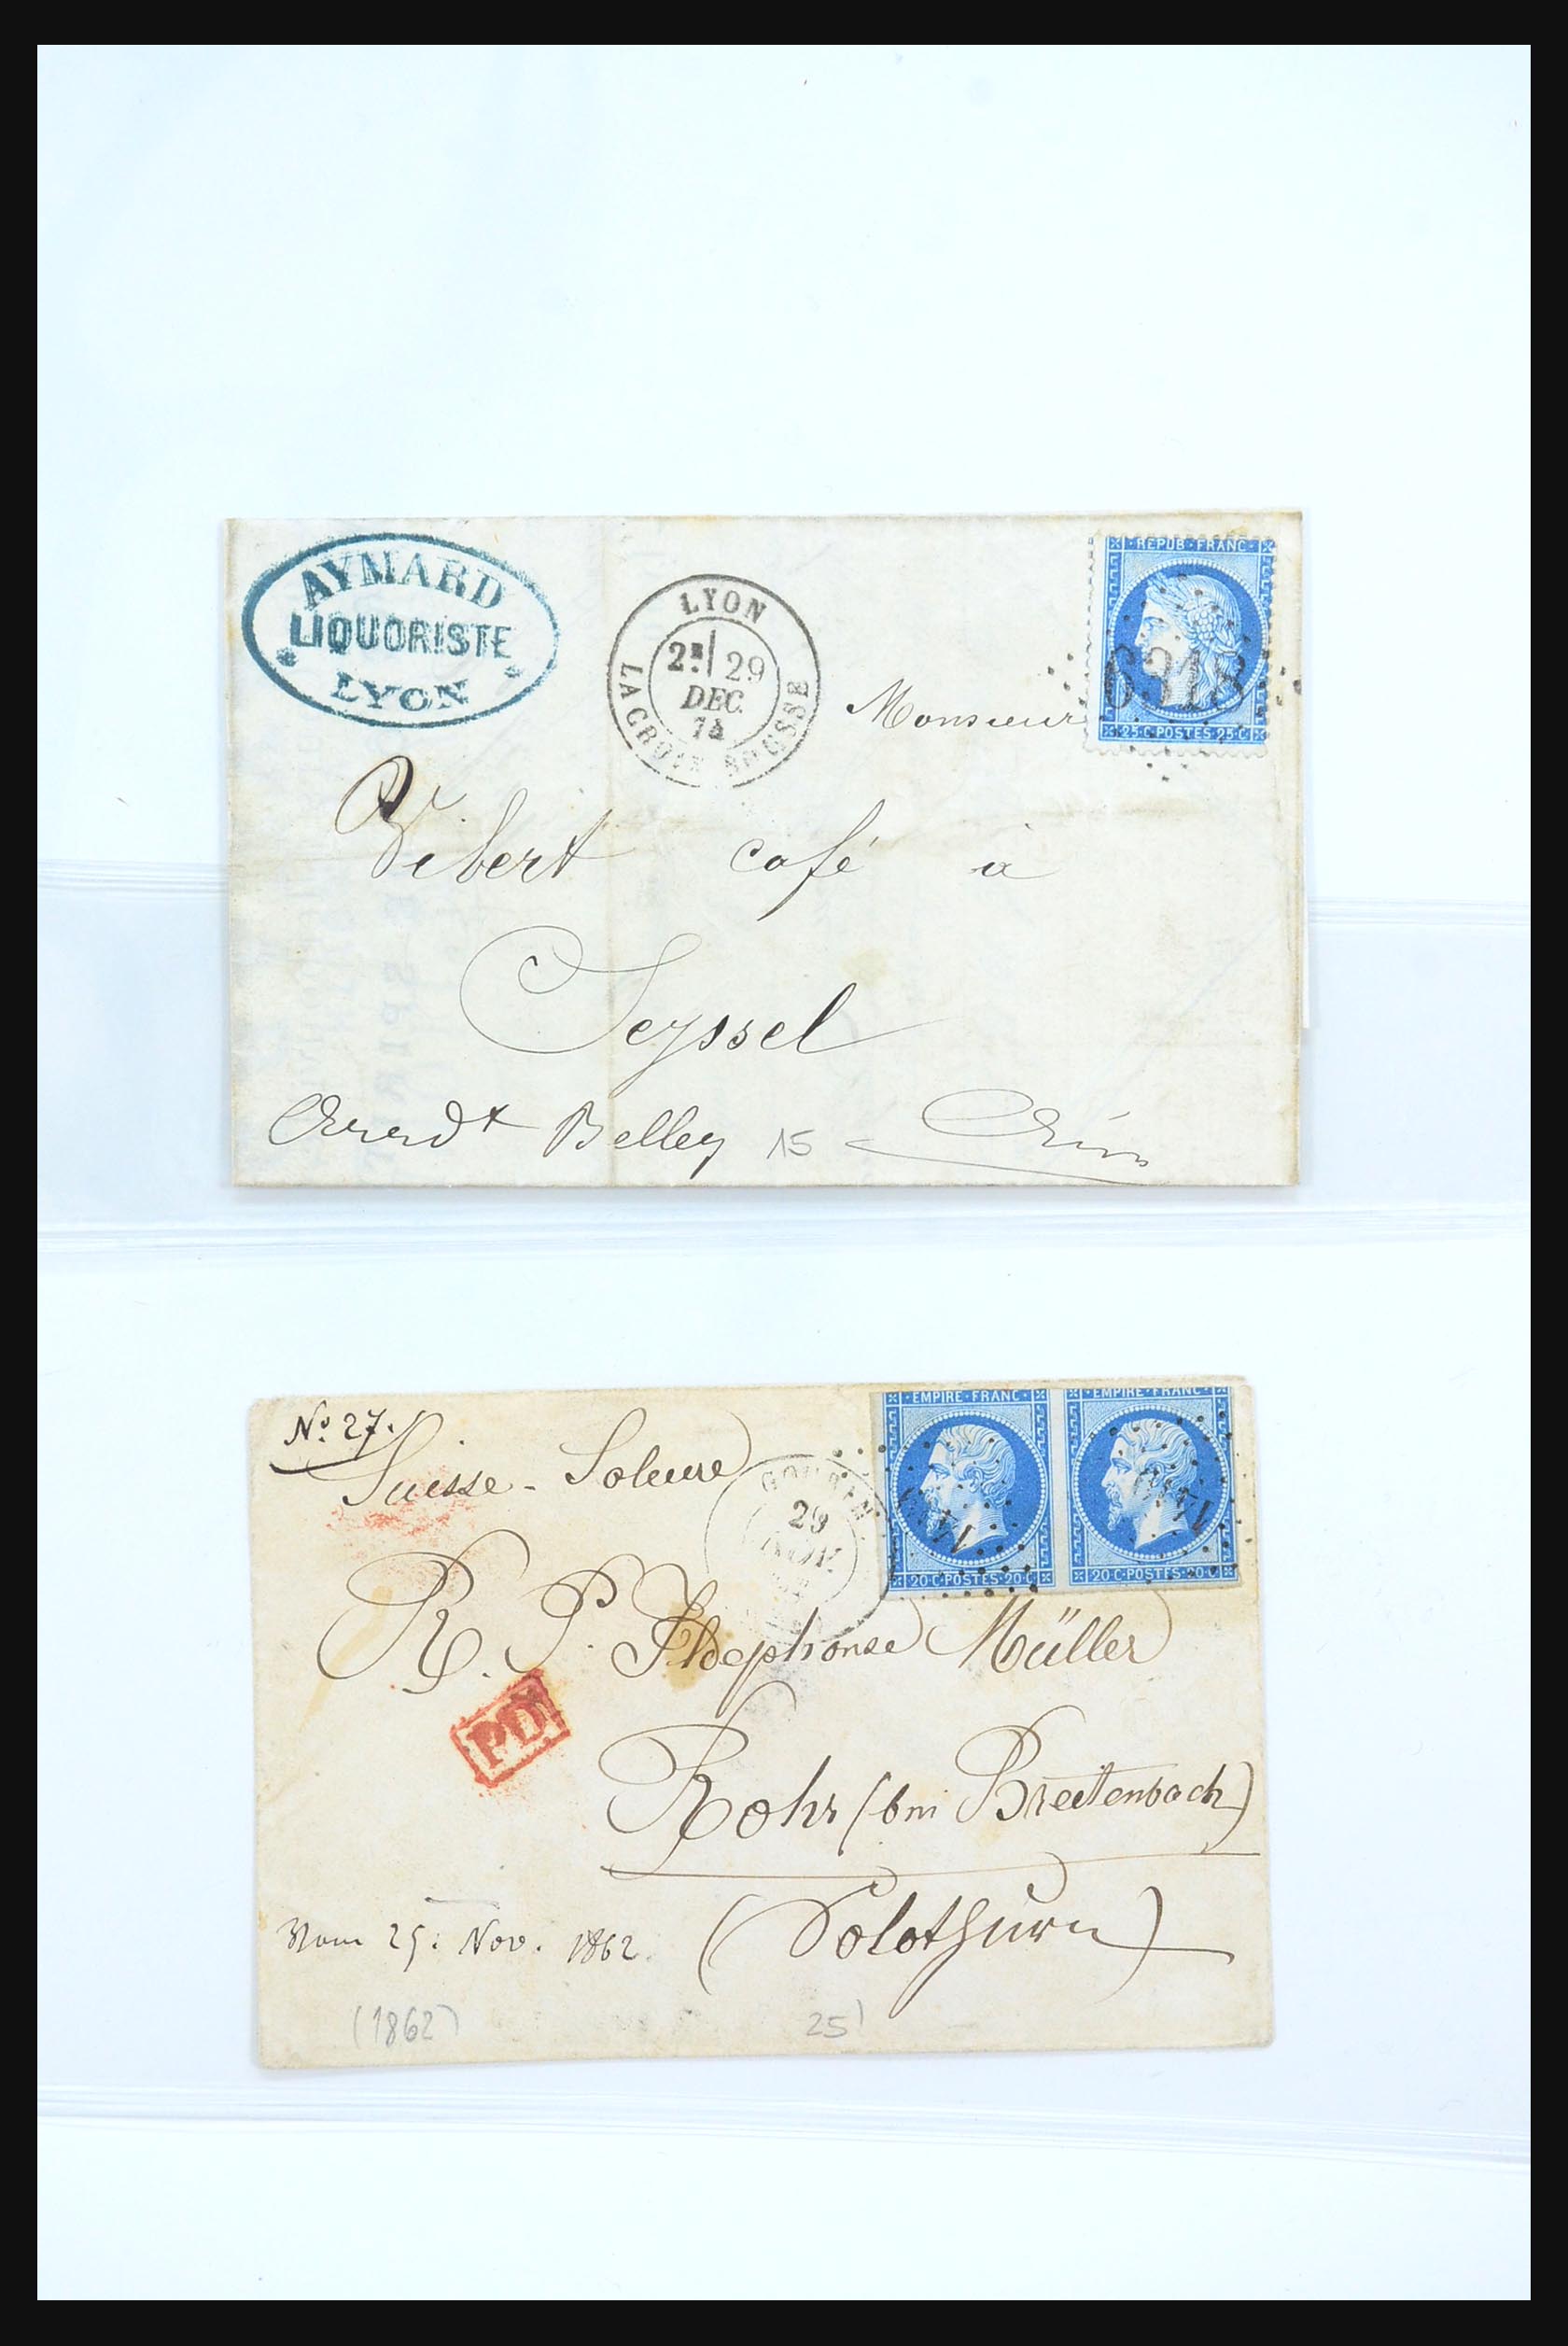 AYMARD
LIQUORISTE
LYON
LYON
2E 29
DEC.
74
LA CROIX ROUSSE
REPUB·FRANC·
6316
25·C·POSTES·25·C
Monsieur
Vibert café à
Seyssel
Arrdt Belley 15 Ain
No. 27.
Suisse - Soleure
GOURIN
29
NOV.
·EMPIRE·FRANC·
20·C·POSTES·20·C
·EMPIRE·FRANC·
20·C·POSTES·20·C
R. P. Ildephonse Müller
PD
Rohr (bei Breitenbach)
Vom 25. Nov. 1862. (Solothurn)
(1862) 25